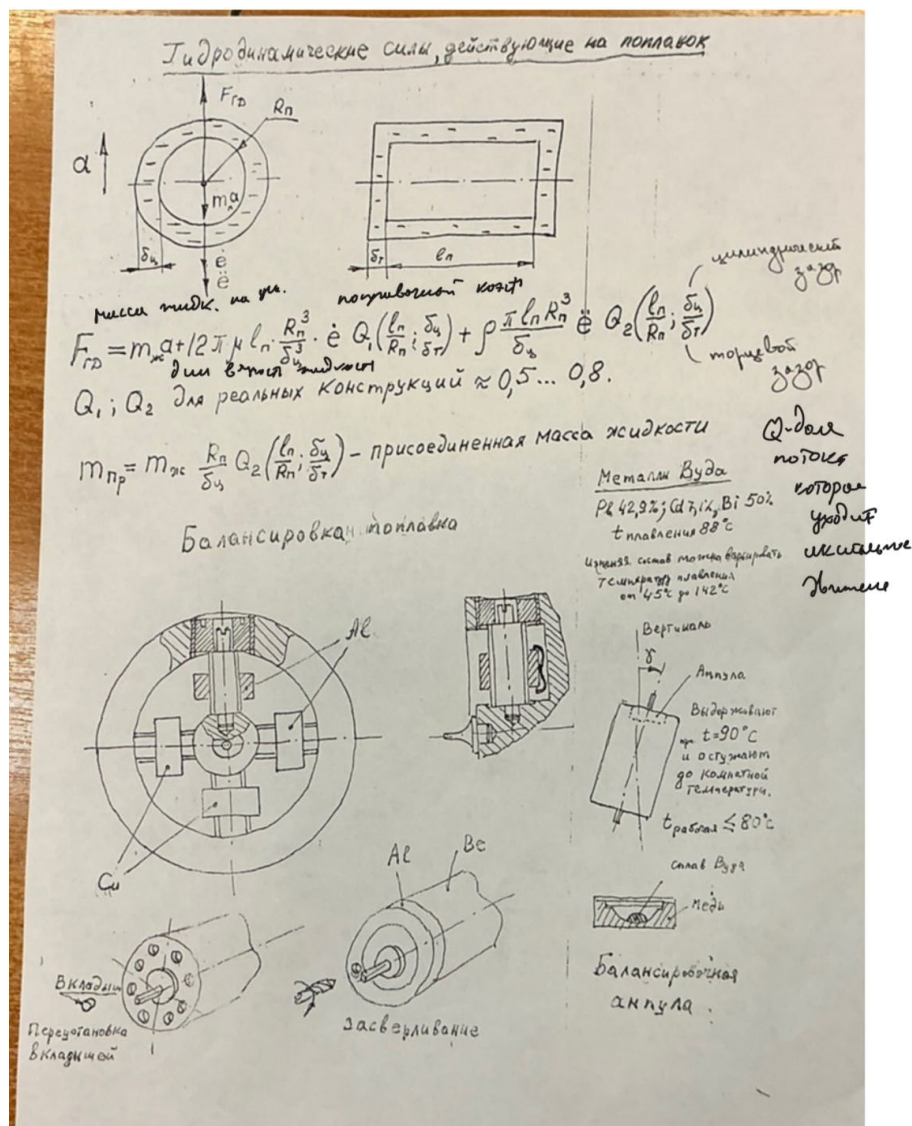 Гидродинамические силы, действующие на поплавок
Fгд
Rп
a
mжa
δц
ė
ë
δт
lп
масса жидк. на уск.
поправочный коэф
цилиндрический
зазор
Fгд = mжa + 12πμ lп · Rп³/δц³ · ė Q₁(lп/Rп; δц/δт) + ρ πlпRп³/δц ë Q₂(lп/Rп; δц/δт)
жидкости
торцевой
зазор
Q₁; Q₂ для реальных конструкций ≈ 0,5... 0,8.
mпр = mж Rп/δц Q₂(lп/Rп; δц/δт) – присоединенная масса жидкости
Q-доля
потока
которая
уходит
Металлы Вуда
Pb 42,9%; Cd 7,1%, Bi 50%
t плавления 88°C
Изменяя состав можно варьировать
температуру плавления
от 45°C до 142°C
Балансировка поплавка
Al
Cu
Вертикаль
γ
Ампула
Выдерживают
при t=90°C
и остужают
до комнатной
температуры.
tрабочая ≤ 80°C
сплав Вуда
медь
Балансировочная
ампула.
Вкладыш
Переустановка
вкладышей
Al
Be
Засверливание